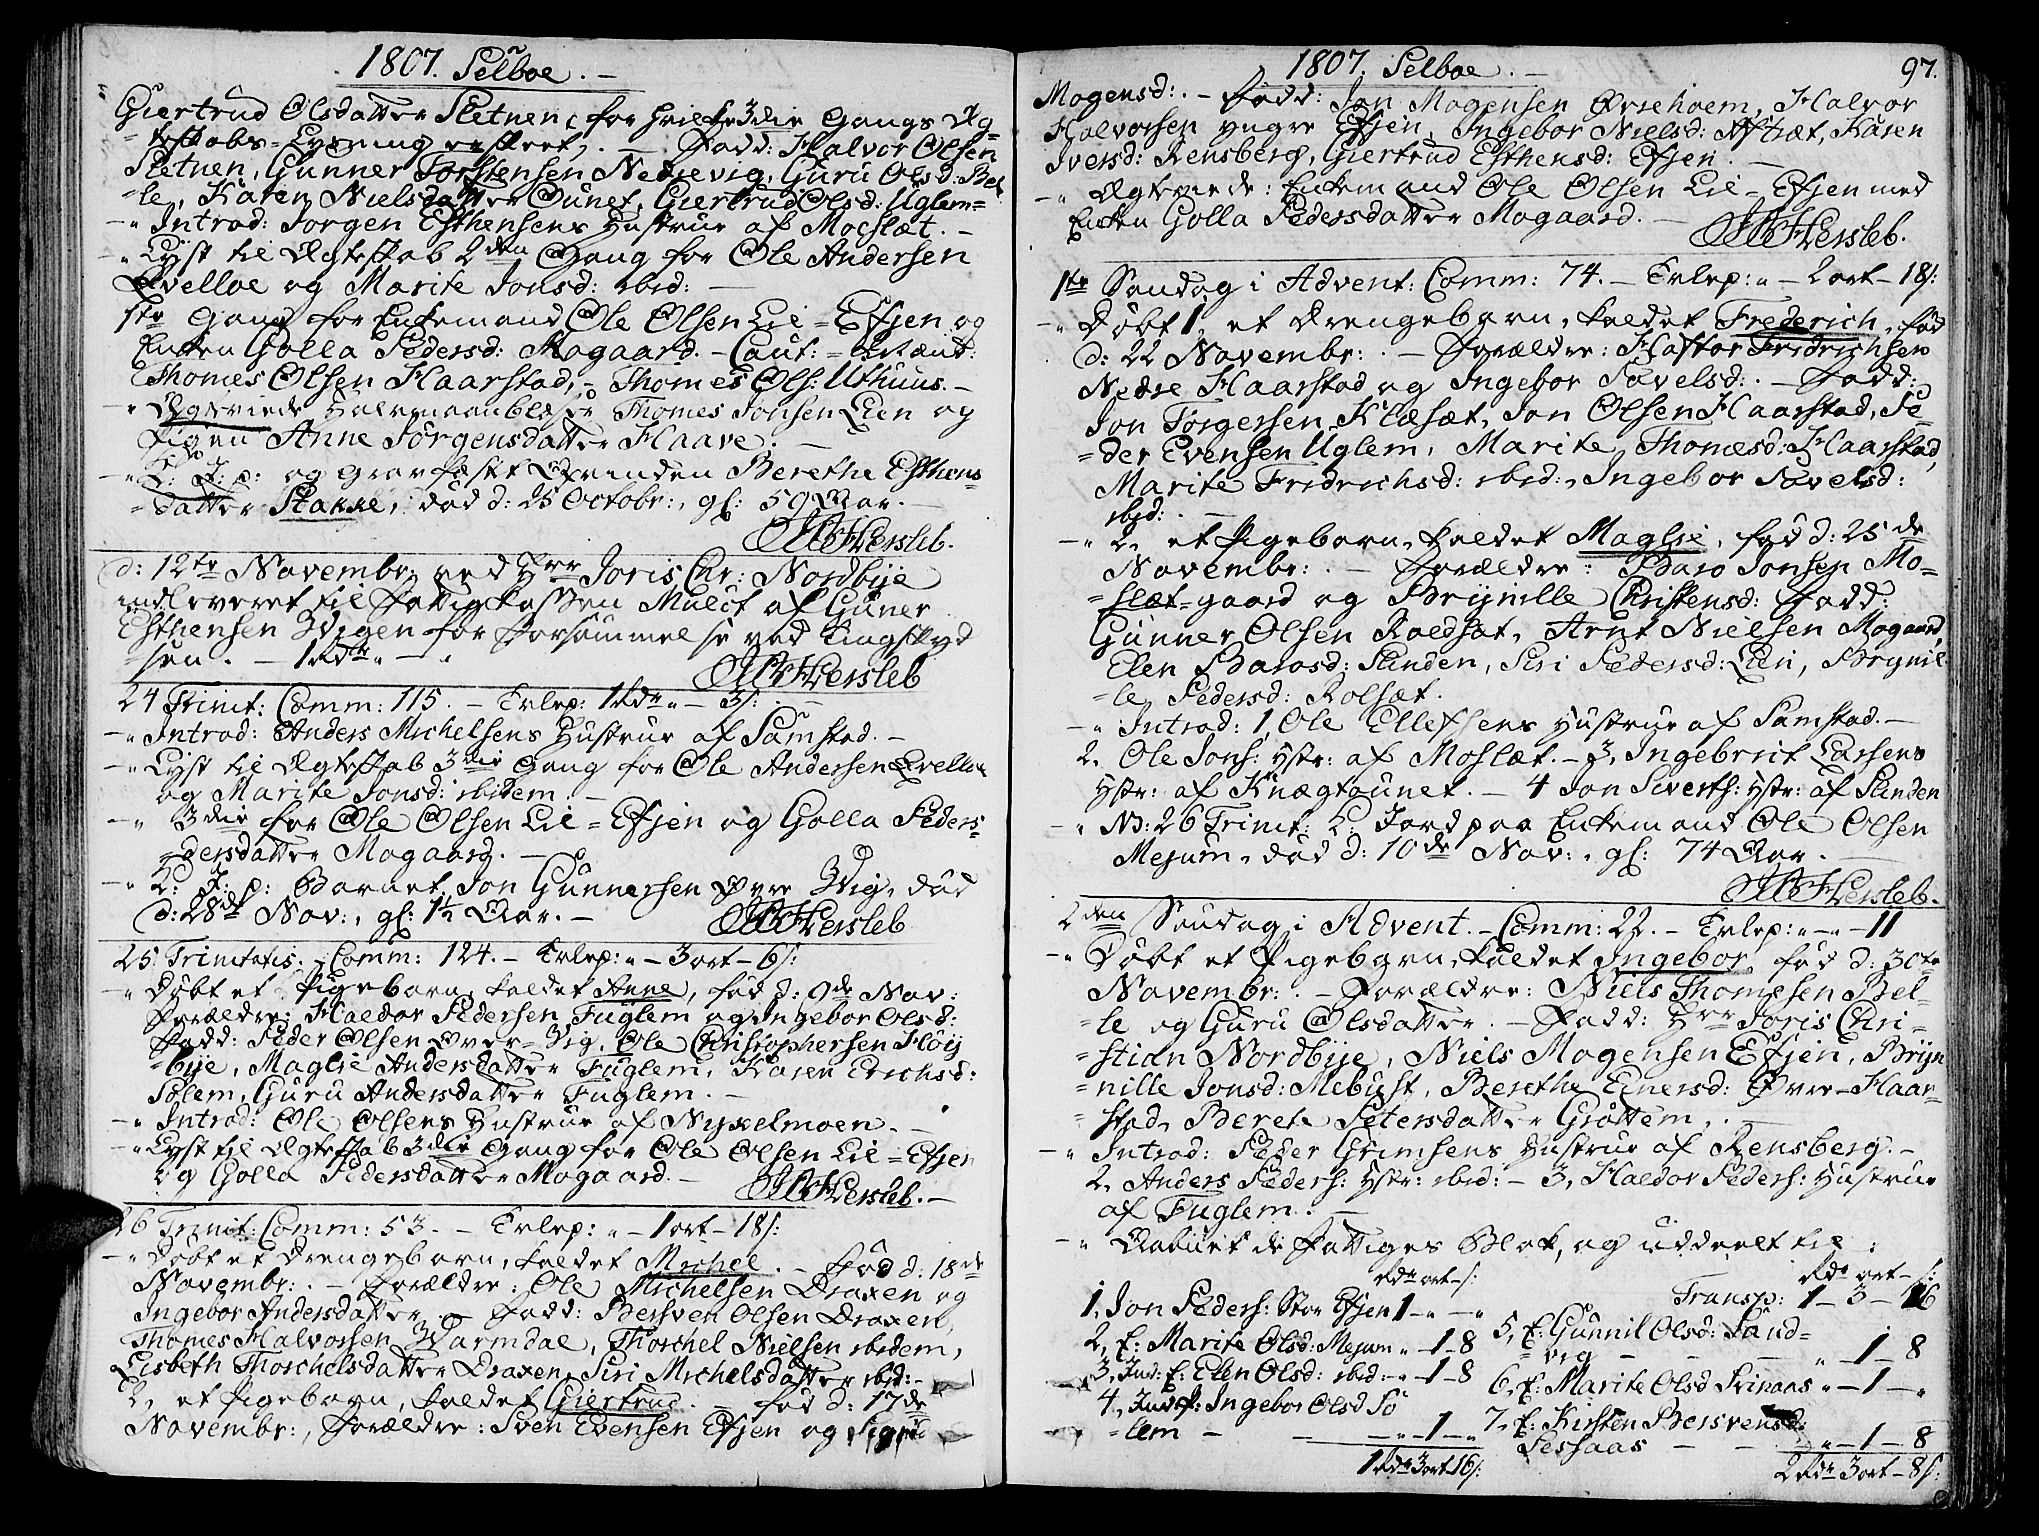 1807. Selboe. –
Giertrud Olsdatter Sletnen, for hvilke 3die Gangs Æg-
teskabs-Lysning er skeet. – Fadd: Halvor Olsen
Sletnen, Gunner Torstensen Nedrevig, Guru Olsd: Bel
le, Karen Nielsdatter Ounet, Giertrud Olsd: Uglem –
–" Introd: Jorgen Esthensens Hustrue af Moslæt. –
–" Lyst til Ægteskab 2den Gang for Ole Andersen
Evelloe og Marite Jonsd: ibid: –
1ste Gang for Enkemand Ole Olsen Lil-Efjen og
Enken Golla Pedersd: Mogaard. – Caut:
Thomes Olsen Haarstad, – Thomes Ols: Uthuus. –
–" Ægteviede Thomes Jonsen Lien og
Pigen Anne Jörgensdatter Haave. –
–" L: J: p: og Gravfæst Qvinden Berethe Esthens-
datter Stokke, död d: 25 Octobr:, gl: 59 Aar. –
Hersleb.
d: 12te Novembr: ved Hrr Joris Chr: Nordbye
indleveret til Fattigkassen Mulct af Guner
Esthensen Wigen for Forsömmelse ved Tingskyd
sen. – 1 Rdr " – "
Hersleb
24 Trinit: Comm: 115. – Erlep: 1 Rdr " – 3 s:
–" Introd: Anders Michelsens Hustrue af Samstad. –
–" Lyst til Ægteskab 3die Gang for Ole Andersen Evelloe
og Marite Jonsd: ibidem. –
–" 3die for Ole Olsen Lil-Efjen og Golla Peders-
dersdatter Mogaard. –
–" L: J: p: Barnet Jon Gunnersen Øvre Wig, död
d: 28de Nov:, gl: 1½ Aar. –
Hersleb
25 Trinitatis. Comm: 124. – Erlep: " – 3 ort – 6 s:
–" Döbt et Pigebarn, kaldet Anne, föd d: 9de Nov:
Forældre: Haldor Pedersen Fuglem og Ingebor Olsd:
Fadd: Peder Olsen Øver-Vig, Ole Christophersen Flöij
bye, Maglie Andersdatter Fuglem, Karen Erichsd:
Solem, Guru Andersdatter Fuglem. –
–" Introd: Ole Olsens Hustrue af Nyxelmoen. –
–" Lyst til Ægteskab 3die Gang for Ole Olsen Lil-Efjen
og Golla Pedersdatter Mogaard. –
Hersleb. –
26 Trinit: Comm: 53. – Erlep: " – 1 ort – 18 s:
–" Döbt et Drengebarn, kaldet Michel. – Föd d: 18de
Novembr: – Forældre: Ole Michelsen Draxen og
Ingebor Andersdatter – Fadd: Bersven Olsen Draxen,
Thomes Halvorsen Warmdal, Thorchel Nielsen ibidem,
Lisbeth Thorchelsdatter Draxen, Siri Michelsdatter ibid: –
2, et Pigebarn, kaldet Giertrud. – föd d: 17de
Novembr:, Forældre: Sven Evensen Efjen og Sigrid
1807. Selboe. –
97.
Mogensd: – Fadd: Jon Mogensen Ørsehoem, Halvor
Halvorsen yngre Efjen, Ingebor Nielsd: Aftræt, Karen
Iversd: Rensberg, Giertrud Esthensd: Efjen. –
–" Ægteviede: Enkemand Ole Olsen Lil-Efjen med
Enken Golla Pedersdatter Mogaard. –
Hersleb.
1te Söndag i Advent: Comm: 74. – Erlep: " – 2 ort – 18 s:
–" Döbt 1, et Drengebarn, kaldet Frederich, föd
d: 22 Novembr: – Forældre: Haftor Fridrichsen
Nedre Haarstad og Ingebor Povelsd: – Fadd:
Jon Torgersen Klæsæt, Jon Olsen Haarstad, Pe
der Evensen Uglem, Marite Thomesd: Haarstad,
Marite Fridrichsd: ibid:, Ingebor Povelsd:
ibid: –
–" 2, et Pigebarn, kaldet Maglie, föd d: 25de
Novembr: – Forældre: Baro Jonsen Mo-
slæt-gaard og Brynille Christensd: Fadd:
Gunner Olsen Roldsæt, Arnt Nielsen Mogaard,
Elen Barosd: Slinden, Siri Pedersd: Lien, Brynil
le Pedersd: Rolsæt.
–" Introd: 1, Ole Ellefsens Hustrue af Samstad. –
2, Ole Jons: Hstr: af Moslæt. – 3, Ingebrit Larsens
Hstr: af Knægtounet. – 4 Jon Siverts: Hstr: af Slinden
–" NB: 26 Trinit: L: Jord paa Enkemand Ole Olsen
Mejum, död d: 10de Nov:, gl: 74 Aar. –
Hersleb.
2den Söndag i Advent. – Comm: 22. – Erlep: " – " – 11
–" Döbt et Pigebarn, kaldet Ingebor, föd d: 30te
Novembr: – Forældre: Niels Thomesen Bel-
le og Guru Olsdatter. – Fadd: Hrr Joris Chri-
stian Nordbye, Niels Mogensen Efjen, Bryn
nille Jonsd: Mebust, Berethe Einersd: Øvre-Haar-
stad, Berete Petersdatter Gröttem. –
–" Introd: Peder Grimsens Hustrue af Rensberg. –
2, Anders Peders: Hstr: ibid: – 3, Haldor Peders: Hustrue
af Fuglem. –
–" Aabnet de Fattiges Blok, og uddeelt til:
Rdr ort – s:
1, Jon Peders: Stor Efjen 1 – " – "
2, E: Marite Olsd: Mejum " – 1 – 8
3, Ind: E: Elen Olsd: ibid: " – 1 – 8
4, Ind: P: Ingebor Olsd So
lem – – – " – 1 – "
1 Rdr 3 ort 16 s:
Rdr ort – s:
Transp: 1 – 3 – 16
5, E: Gunnil Olsd: Sand-
vig – – – " – 1 – 8
6, E: Marite Olsd " – 1 – "
7, E: Kirsten Bersvensd:
Sessaas – – " – 1 – 8
2 Rdr 3 ort – 8 s: